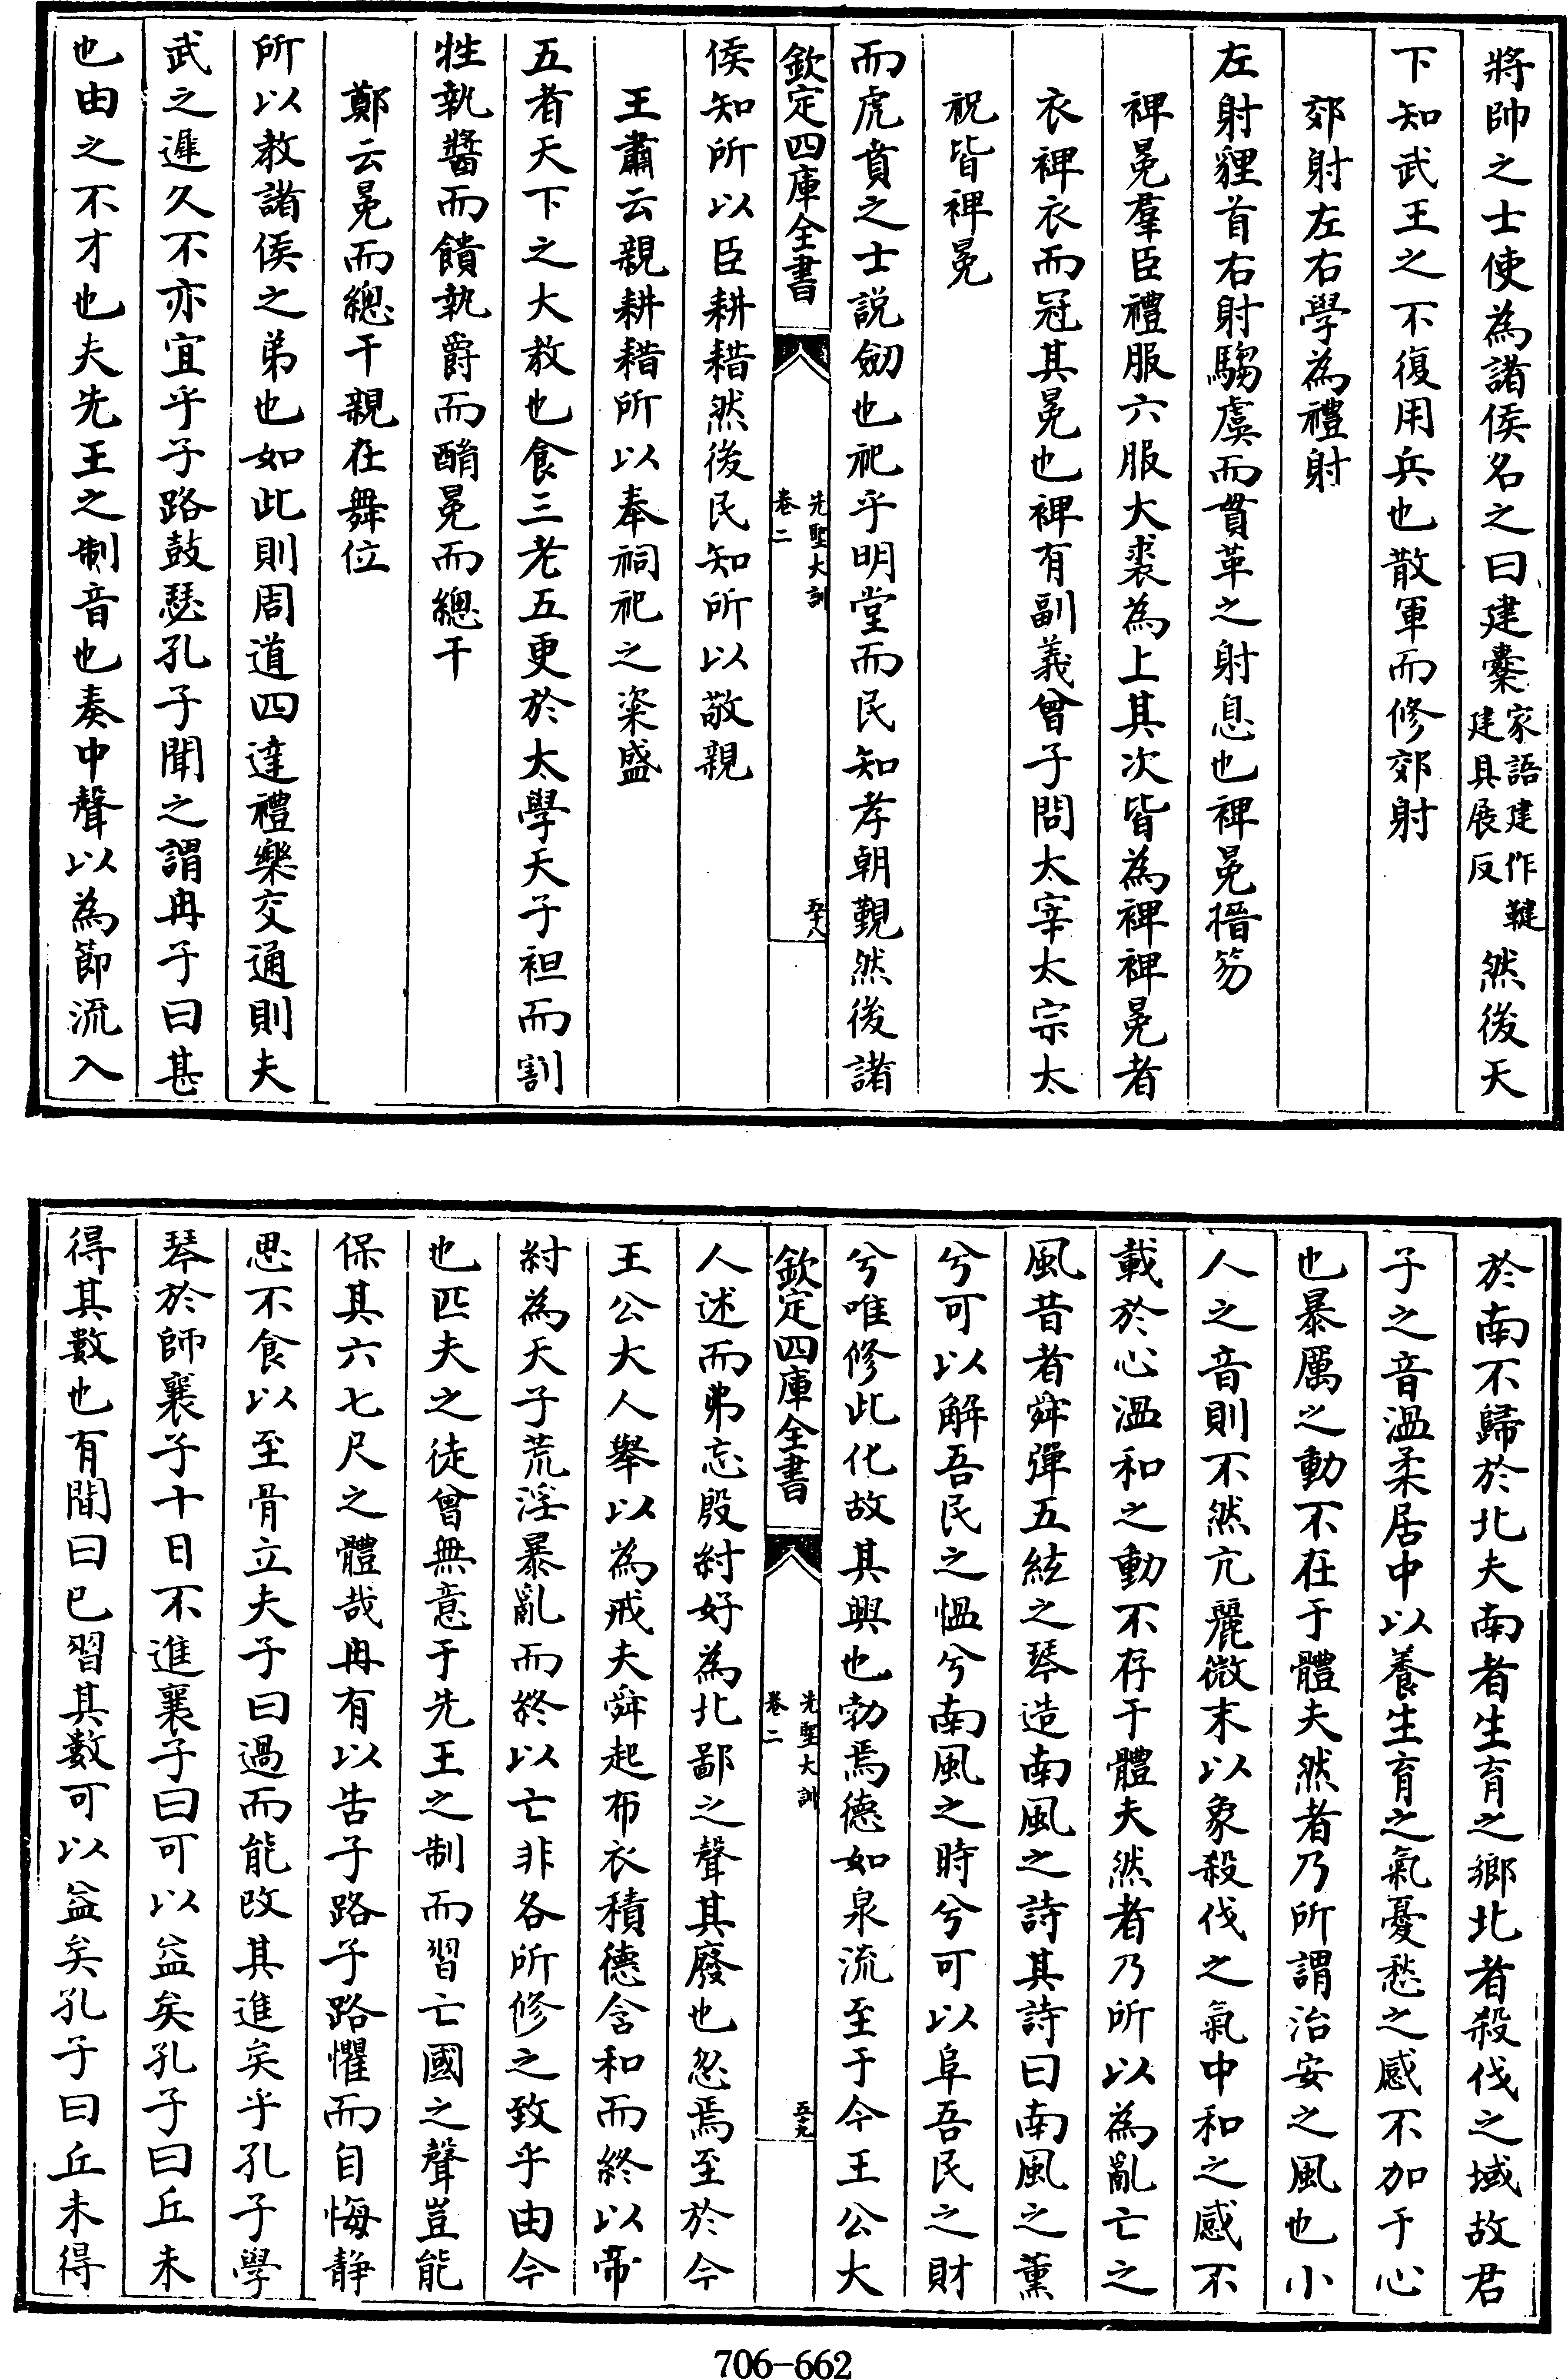 將帥之士使為諸侯名之曰建櫜家語建作鞬建具展反然後天
下知武王之不復用兵也散軍而修郊射
郊射左右學為禮射
左射貍首右射騶虞而貫革之射息也裨冕搢笏
裨冕羣臣禮服六服大裘為上其次皆為裨裨冕者
衣裨衣而冠其冕也裨有副義曾子問太宰太宗太
祝皆裨冕
而虎賁之士説劒也祀乎明堂而民知孝朝覲然後諸
欽定四庫全書
先聖大訓
卷二
五十八
侯知所以臣耕耤然後民知所以敬親
王肅云親耕耤所以奉祠祀之粢盛
五者天下之大教也食三老五更於太學天子袒而割
牲執醬而饋執爵而酳冕而總干
鄭云冕而總干親在舞位
所以教諸侯之弟也如此則周道四達禮樂交通則夫
武之遲久不亦宜乎子路鼓瑟孔子聞之謂冉子曰甚
也由之不才也夫先王之制音也奏中聲以為節流入
於南不歸於北夫南者生育之鄉北者殺伐之域故君
子之音溫柔居中以養生育之氣憂愁之感不加于心
也暴厲之動不在于體夫然者乃所謂治安之風也小
人之音則不然亢麗微末以象殺伐之氣中和之感不
載於心溫和之動不存于體夫然者乃所以為亂亡之
風昔者舜彈五絃之琴造南風之詩其詩曰南風之薰
兮可以解吾民之慍兮南風之時兮可以阜吾民之財
兮唯修此化故其興也勃焉德如泉流至于今王公大
欽定四庫全書
先聖大訓
卷二
五十九
人述而弗忘殷紂好為北鄙之聲其廢也忽焉至於今
王公大人舉以為戒夫舜起布衣積德含和而終以帝
紂為天子荒淫暴亂而終以亡非各所修之致乎由今
也匹夫之徒曾無意于先王之制而習亡國之聲豈能
保其六七尺之體哉冉有以告子路子路懼而自悔静
思不食以至骨立夫子曰過而能改其進矣乎孔子學
琴於師襄子十日不進襄子曰可以益矣孔子曰丘未
得其數也有間曰已習其數可以益矣孔子曰丘未得
706-662